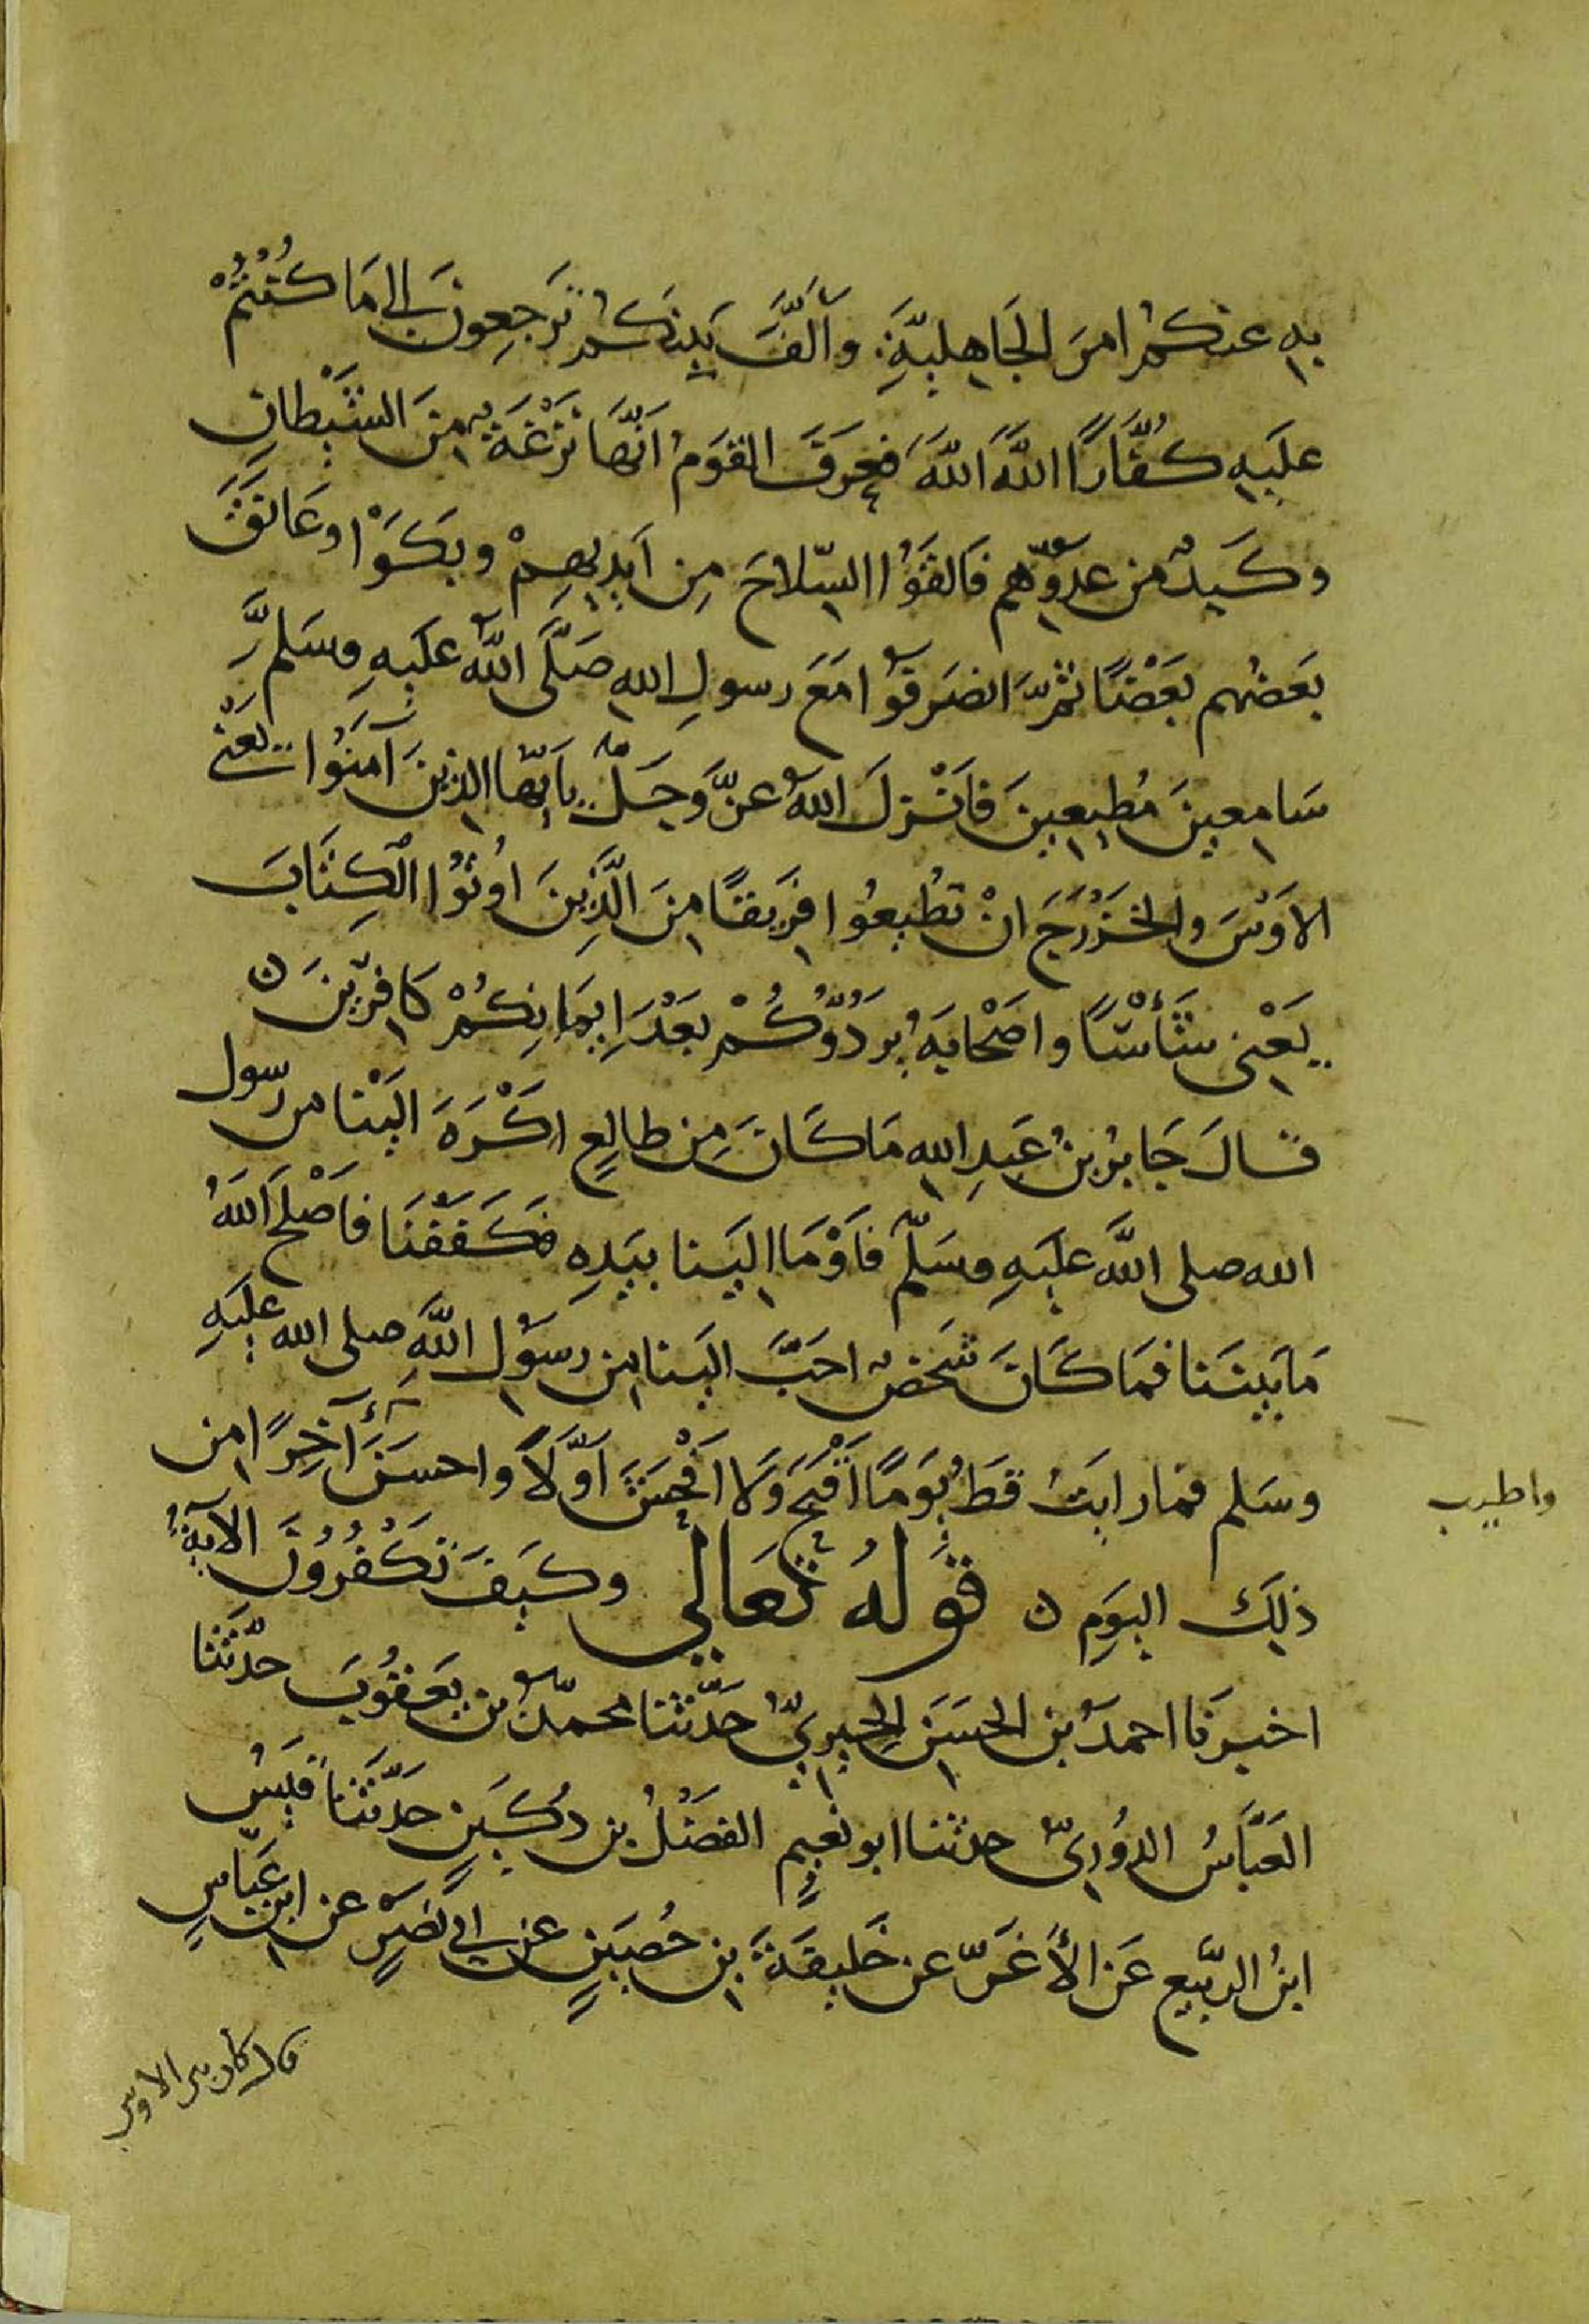 بِهِ عنكمْ امرَ الجَاهِلِيَّةِ وَأَلَّفَ بَيْنَكُمْ تَرجِعونَ إلى مَا كُنْتُمْ
عَلَيهِ كُفَّارًا اللهَ اللهَ فعَرَفَ القومُ انَّها نَزْغَةٌ مِنَ الشَّيْطانِ
وكَيدٌ من عدوِّهم فَالقَوُا السِّلاحَ مِن اَيدِيهِمْ وبَكَوْا وعَانَقَ
بَعضُهم بَعْضًا ثمَّ انصَرفُوا مَعَ رسولِ اللهِ صَلَّى اللهُ عَلَيهِ وسَلم
سَامِعينَ مُطِيعِينَ فَاَنْزلَ اللهُ عزَّ وَجَلَّ يا أيّها الذينَ آمَنُوا يَعْني
الاَوْسَ والخَزْرَجَ انْ تُطِيعُوا فَرِيقًا مِنَ الَّذِينَ اُوتُوا الكِتَابَ
يَعْنِي شَأْسًا واَصْحابَهُ يَردُّوكُمْ بَعْدَ اِيمَانِكُمْ كَافِرِينَ ه
قالَ جَابرُ بنُ عَبدِ اللهِ مَا كَانَ مِن طالِعٍ اكْرَهَ اليْنَا من رسول
الله صلى اللهُ عليهِ وسَلّم فَاَوْمَا الَينا بِيَدِهِ فكَفَفْنَا فاَصْلَحَ اللهُ
مَا بَينَنا فمَا كَانَ شَخصٌ احَبَّ الَينا مِن رسُولِ اللهِ صلى الله عليهِ
وسَلم فما رايتُ قطُّ يَومًا اَقْبَحَ وَلا اَفْحَشَ اَوَّلاً واحسَنَ آخِرًا من
واطيب
ذلِكَ اليَومِ ه قَولهُ تَعَالى وكَيفَ تَكْفُرُونَ الآيةَ
اخبرَنا احمدُ بن الحسَن الحِيريُّ حَدّثنا محمّدُ بن يَعقُوبَ حدّثنا
العَبَّاسُ الدُّورِيّ حدثنا ابو نُعَيمٍ الفَضْلُ بن دُكَينٍ حَدّثنا قَيسُ
ابنُ الرّبيعِ عَن الأَغَرِّ عن خَلِيفَةَ بنِ حُصَينٍ عن ابي نَصرٍ عن ابنِ عَبّاسٍ
قال كان بين الاوس